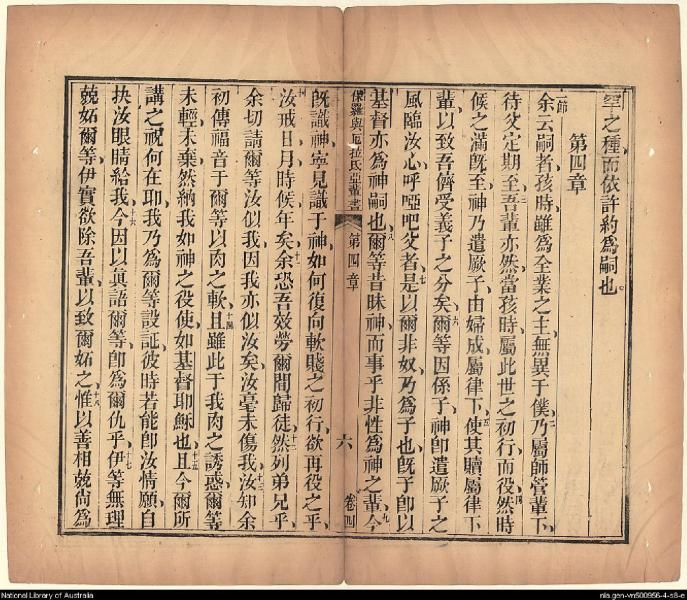 罕之種而依許約為嗣也
第四章
一節
余云嗣者孩時雖為全業之主無異于僕乃屬師管輩下
待父定期至吾輩亦然當孩時屬此世之初行而役然時
候之滿旣至神乃遣厥子由婦成屬律下使其贖屬律下
輩以致吾儕受義子之分矣爾等因係子神卽遣厥子之
風臨汝心呼啞吧父者是以爾非奴乃為子也旣于卽以
基督亦為神嗣也爾等昔昧神而事乎非性為神之輩今
保羅與厄拉氏亞輩書
第四章
六
卷四
旣識神寧見識于神如何復向軟賤之初行欲再役之乎
汝戒日月時候年矣余恐吾效勞爾間歸徒然列弟兄乎
余切請爾等汝似我因我亦似汝矣汝毫未傷我汝知余
初傳福音于爾等以肉之軟且雖此于我肉之誘惑爾等
未輕未棄然納我如神之役使如基督耶穌也且今爾所
講之祝何在耶我乃為爾等設証彼時若能卽汝情願自
抉汝眼睛給我今因以真語爾等卽為爾仇乎伊等無理
兢妬爾等伊實欲除吾輩以致爾妬之惟以善相兢尙為
National Library of Australia
nla.gen-vn500956-4-s8-e